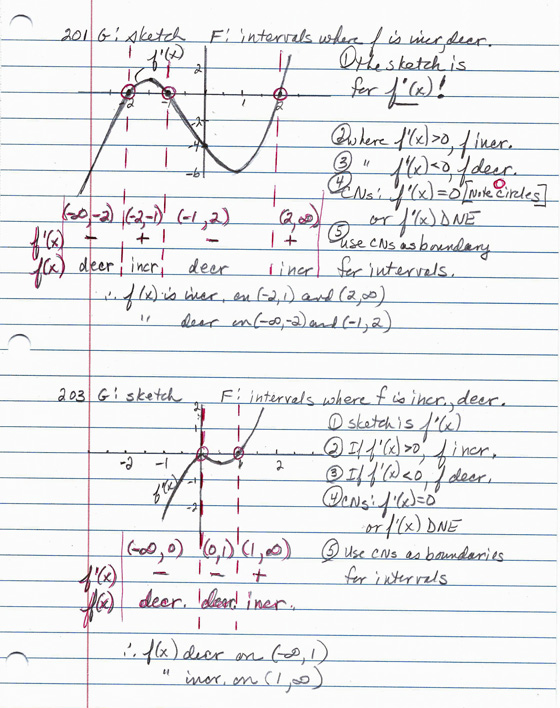 201 G: sketch F: intervals where f is incr, decr.
f'(x)
① the sketch is
for f'(x)!
② where f'(x)>0, f incr.
③ " f'(x)<0, f decr.
④ CNs: f'(x)=0 [Note Circles]
or f'(x) DNE
⑤ use CNs as boundary
for intervals.
2
-2 -1 2
-2
-4
-6
(-∞,-2) (-2,-1) (-1,2) (2,∞)
f'(x) - + - +
f(x) decr incr decr incr
∴ f(x) is incr. on (-2,1) and (2,∞)
" decr on (-∞,-2) and (-1,2)
203 G: sketch F: intervals where f is incr., decr.
① sketch is f'(x)
② If f'(x)>0, f incr.
③ If f'(x)<0, f decr.
④ CNs: f'(x)=0
or f'(x) DNE
⑤ Use CNs as boundaries
for intervals
2
-2 -1 1 2
f'(x)
-1
-2
(-∞,0) (0,1) (1,∞)
f'(x) - - +
f(x) decr. decr incr.
∴ f(x) decr on (-∞,1)
" incr. on (1,∞)